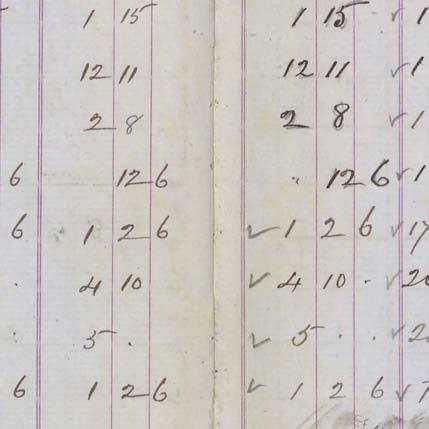 1 15 1 15 ✓ 1
12 11 12 11 ✓ 1
2 8 2 8 ✓ 1
6 12 6 " 12 6 ✓ 1
6 1 2 6 ✓ 1 2 6 ✓ 17
. 4 10 ✓ 4 10 . ✓
. 5 . ✓ 5 . . ✓ 2
6 1 2 6 ✓ 1 2 6 ✓